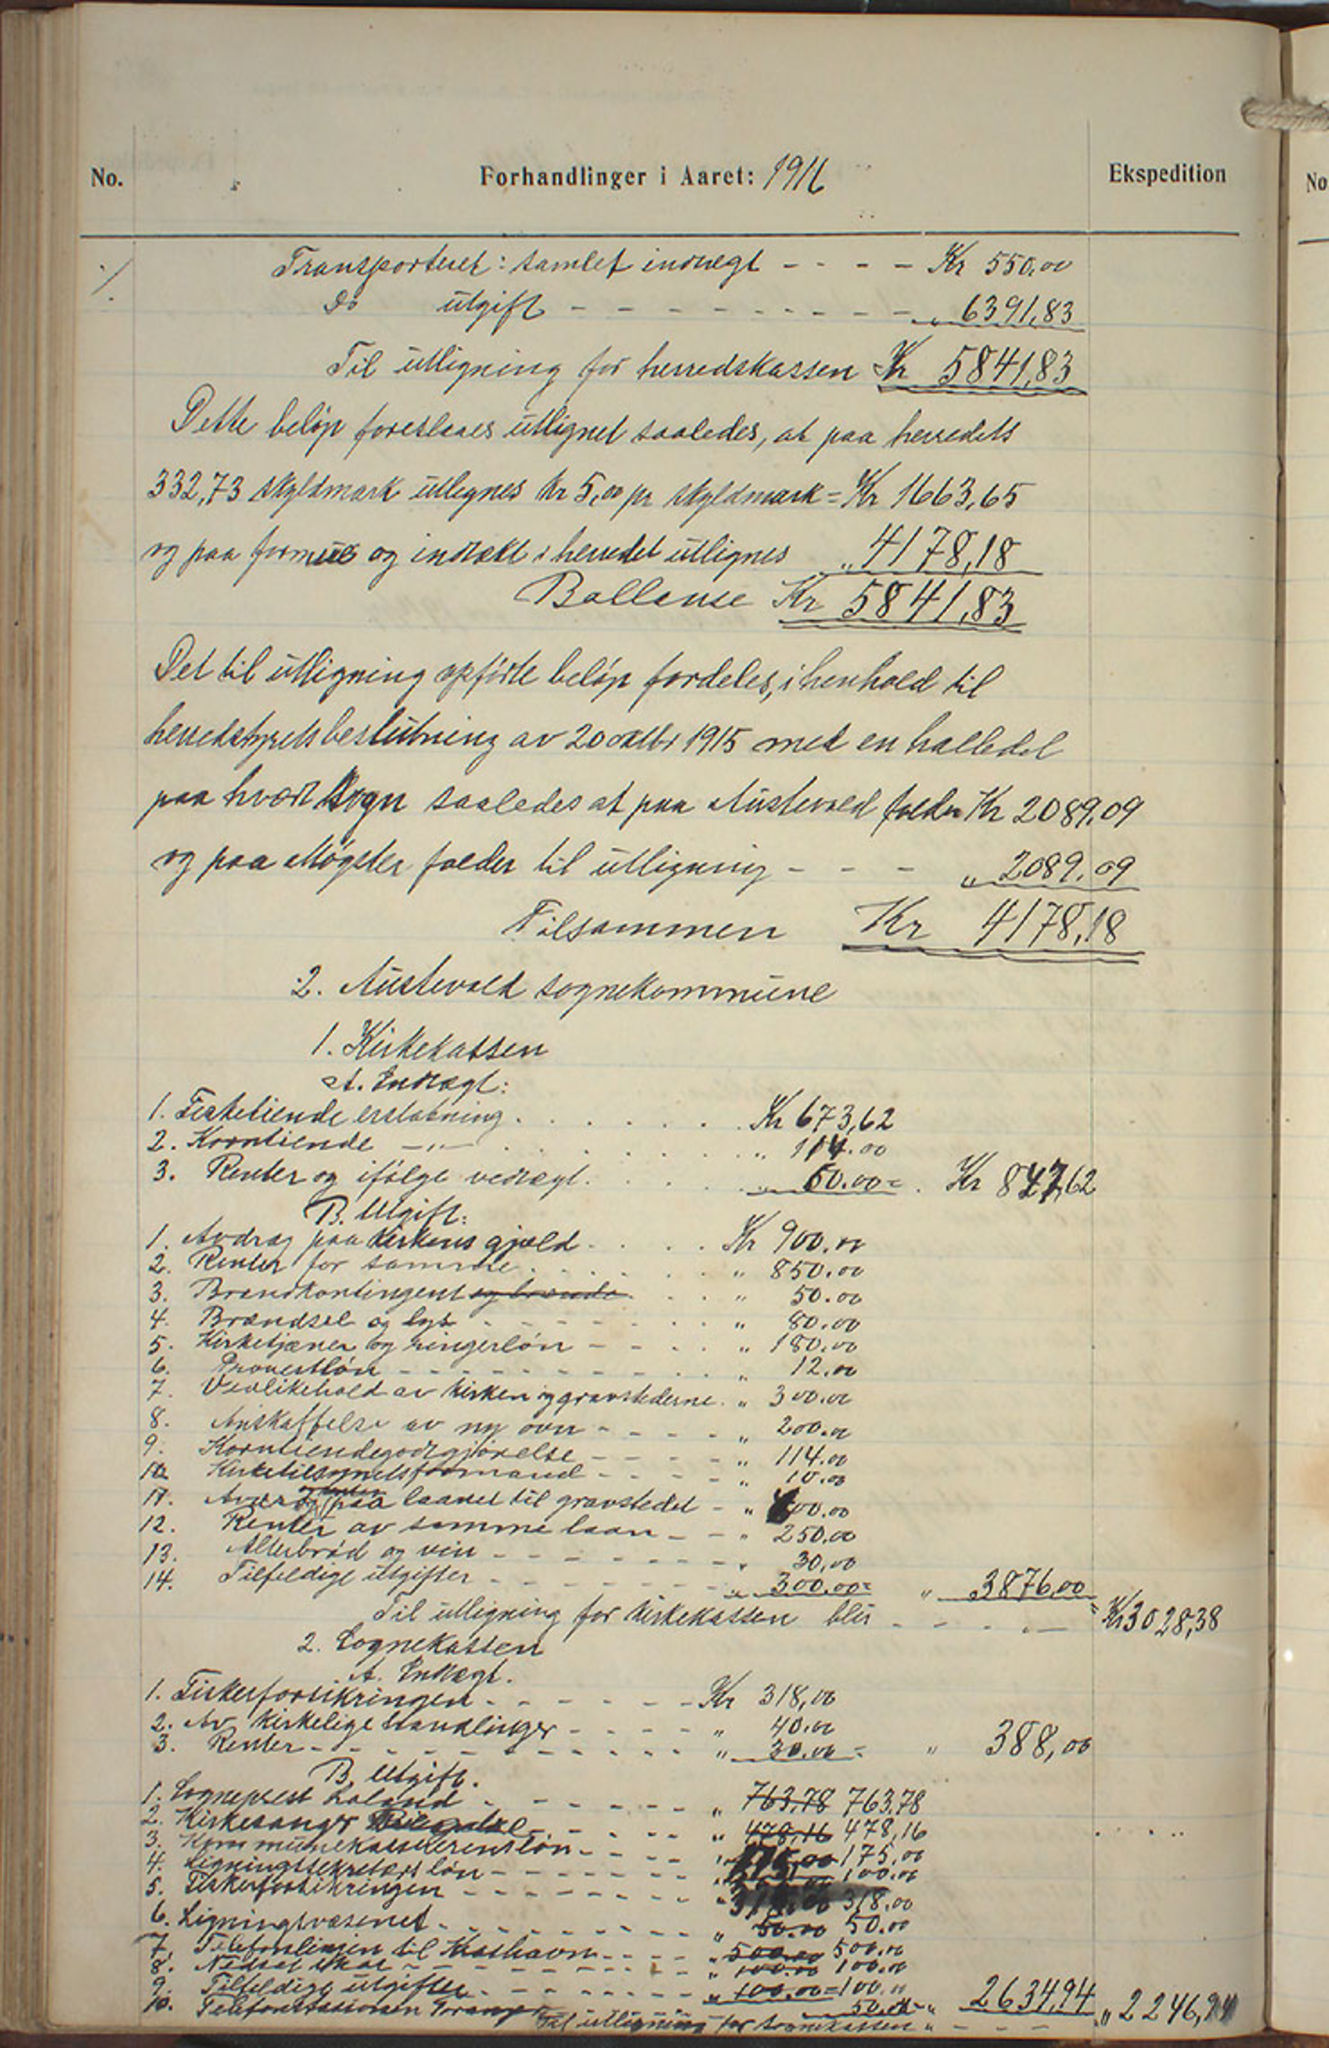 No.
Forhandlinger i Aaret: 1916
Ekspedition
No
Transporteret: samlet indtægt - - - - Kr 550,00
Do utgift - - - - - - - - - " 6391,83
Til utligning for herredskassen Kr 5841,83
Dette beløp foreslaaes utlignet saaledes, at paa herredets
332,73 skyldmark utlignes kr 5,00 pr skyldmark = Kr 1663,65
og paa formue og indtækt i herredet utlignes " 4178,18
Ballanse Kr 5841,83
Det til utligning opførte beløp fordeles, i henhold til
herredstyrets beslutning av 20 oktbr 1915 med en halledel
paa hvert sogn saaledes at paa Austevold falder Kr 2089,09
og paa Møgster falder til utligning - - - " 2089,09
Tilsammen Kr 4178,18
2. Austevold sognekommune
1. Kirkekassen
A. Indtægt:
1. Fisketiende erstatning . . . . . . . Kr 673,62
2. Korntiende -"- . . . . . . . " 114.00
3. Renter og ifølge vedtægt . . . . . " 60.00 = . Kr 847,62
B. Utgift:
1. Avdrag paa kirkens gjæld . . . . Kr 900.00
2. Renter for samme . . . . . . . " 850.00
3. Brandkontingent og brænde . . . " 50.00
4. Brændsel og lys - - - - - - . . " 80.00
5. Kirketjener og ringerløn - - - . " 180.00
6. Provestløn - - - - - - - - . . " 12.00
7. Vedlikehold av kirken og gravstederne . " 300.00
8. Anskaffelse av ny ovn - - - - . " 200.00
9. Korntiendegodtgjørelse - - - - . " 114.00
10. Kirketilsynetsformand - - - - - " 10.00
11. Avdrag paa laanet til gravstedet - " 600.00
12. Renter av samme laan - - - " 250,00
13. Alterbrød og vin - - - - - - - . " 30,00
14. Tilfeldige utgifter - - - - - - - " 300.00 = " 3876,00
Til utligning for kirkekassen blir - - - " - = Kr 3028,38
2. Sognekassen
A. Indtægt.
1. Fiskerforsikringen - - - - - - - Kr 318,00
2. Av kirkelige handlinger - - - - - " 40.00
3. Renter - - - - - - - - - - - " 30.00 = " 388,00
B. Utgift.
1. Sogneprest Loland - - - - - - " 763,78 763,78
2. Kirkesanger - - . . . . " 478,16 478,16
3. Kommunekassererens løn - . . . . " 175,00 175,00
4. Ligningssekretærs løn - - - - - - " 100.00
5. Fiskerforsikringen - - - - - - - " 318.00 318.00
6. Ligningsvæsenet - - - - - - - - " 50.00 50.00
7. Telefonlinjen til - - - - " 500.00 500.00
8. Nedsat skat - - - - - - - - - " 100.00 100.00
9. Tilfeldige utgifter - . . . . . . " 100.00 = 100.00
10. Telefonstationen 50,00 - " 2634,94
Til utligning for sognekassen " - - - " 2246,94